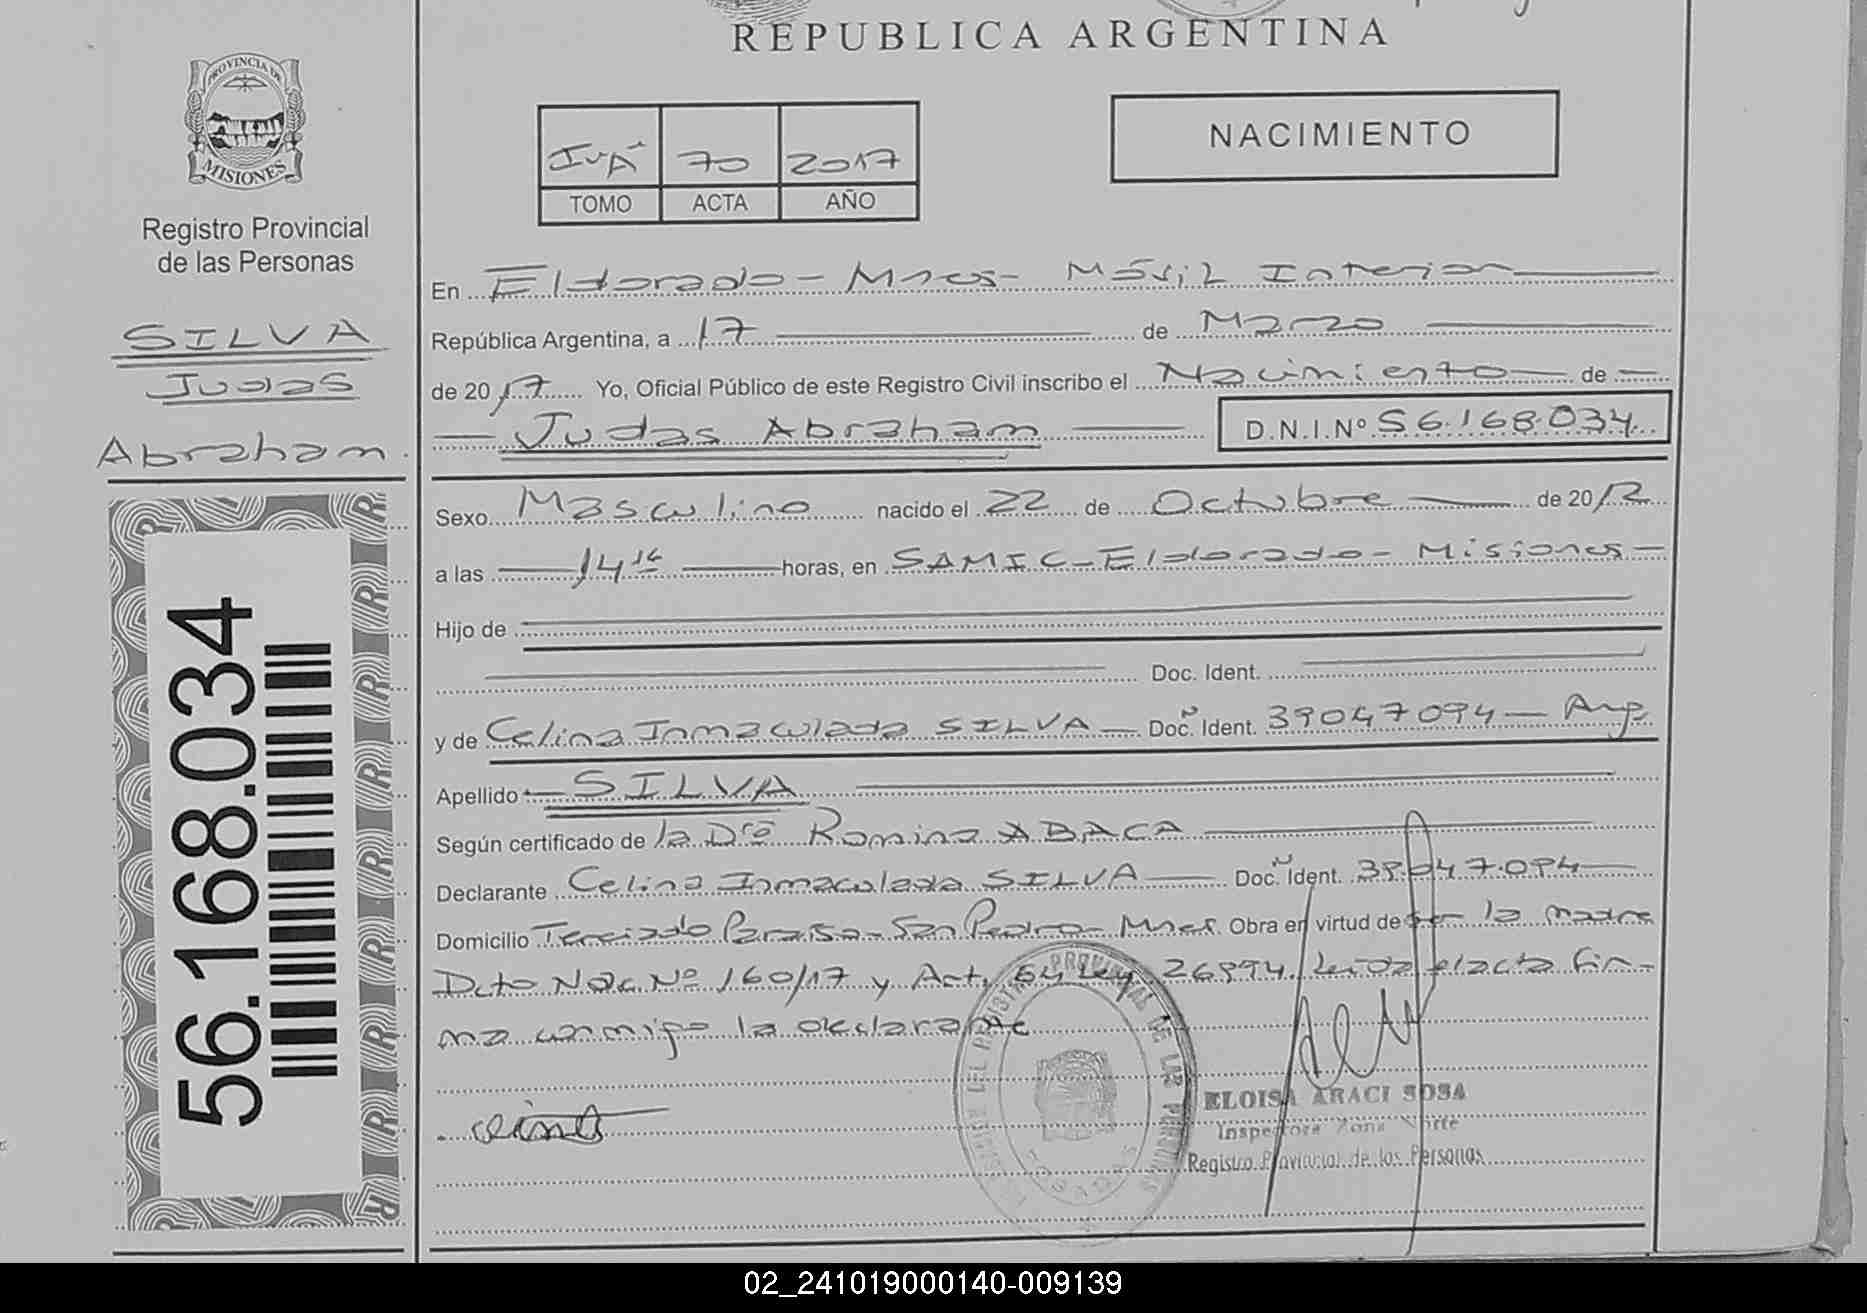 REPUBLICA ARGENTINA
PROVINCIA DE
MISIONES
Registro Provincial
de las Personas
SILVA
Judas
Abraham.
56.168.034
70 2017
TOMO ACTA AÑO
NACIMIENTO
En Eldorado - Mnes - Móvil Interior
República Argentina, a 17 de Marzo
de 2017 Yo, Oficial Público de este Registro Civil inscribo el Nacimiento de
Judas Abraham D.N.I.Nº 56.168.034
Sexo Masculino nacido el 22 de Octubre de 2012
a las 14 16 horas, en SAMIC - Eldorado - Misiones -
Hijo de
Doc. Ident.
y de Celina Inmaculada SILVA - Doc. Ident. 39047094 - Arg.
Apellido SILVA
Según certificado de la Dra Romina ABACA
Declarante Celina Inmaculada SILVA Doc. Ident. 39.047.094
Domicilio Terciado Paraiso - San Pedro - Mnes. Obra en virtud de ser la madre
Dcto Nac. Nº 160/17 y Art. 64 Ley 26994. Leida el acta fir-
ma conmigo la declarante
ELOISA ARACI SOSA
Inspectora Zona Norte
Registro Provincial de las Personas
02_241019000140-009139